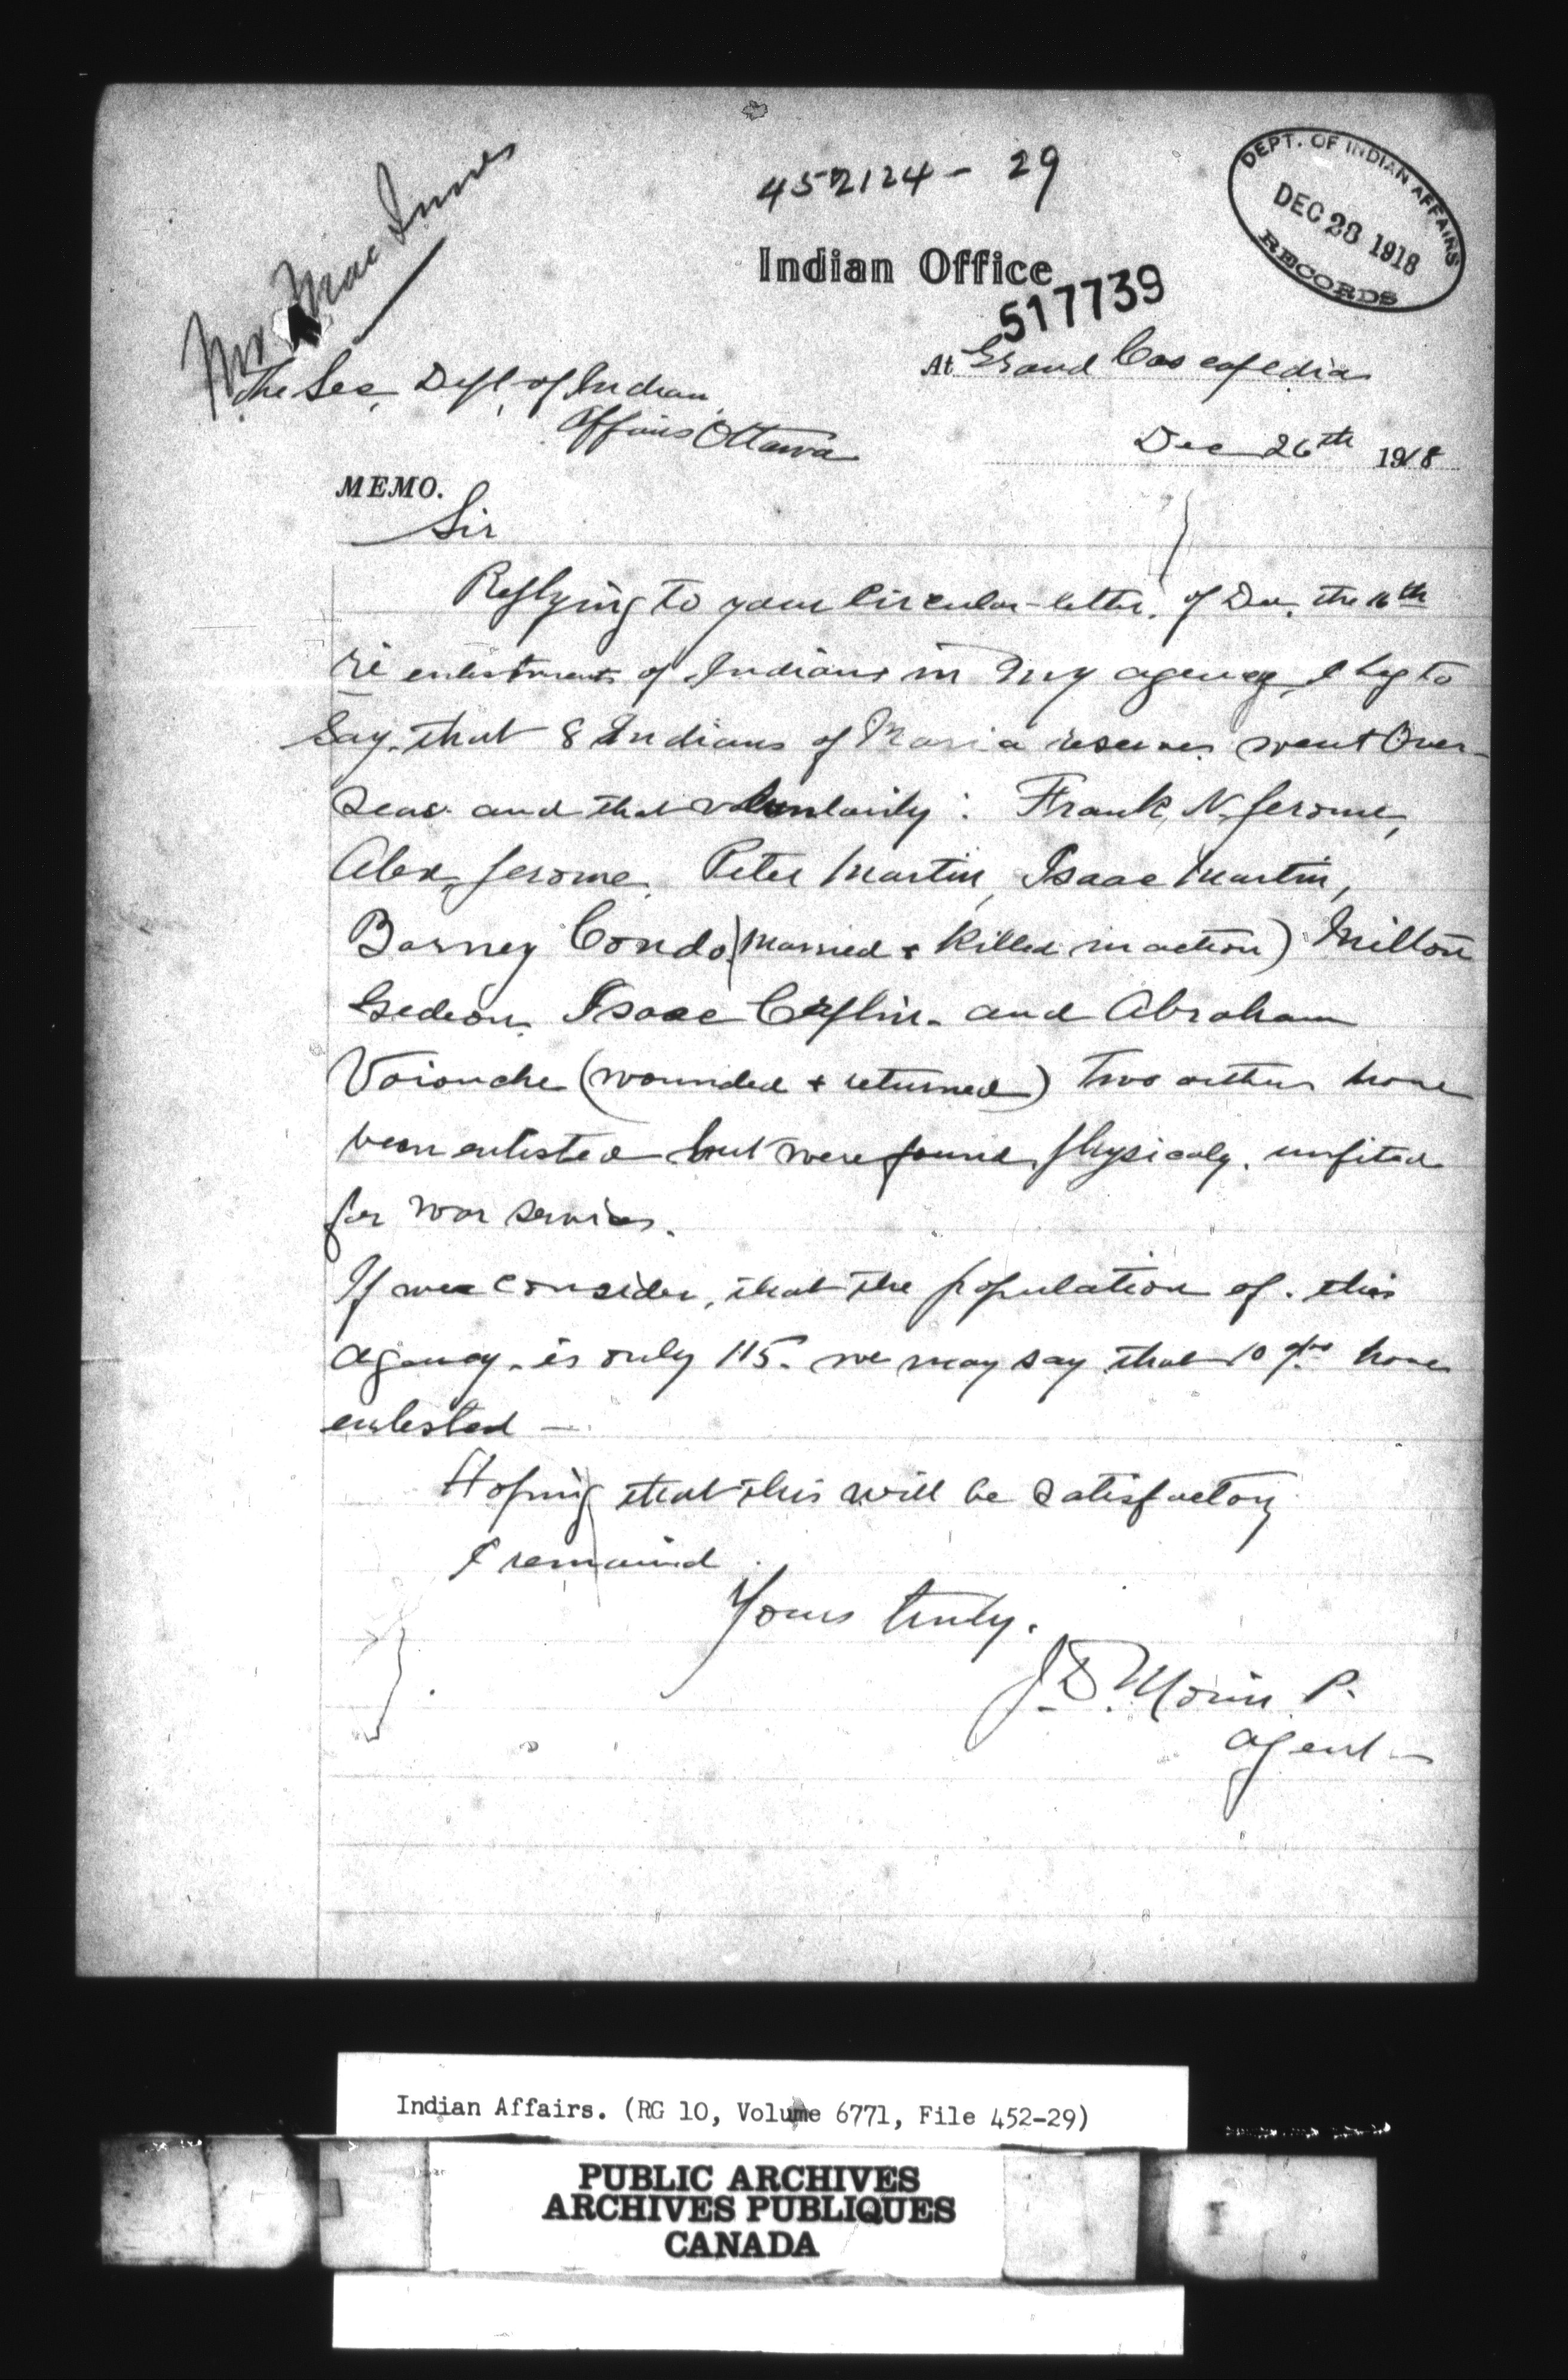 Mr Mac Innes
452124 - 29
DEPT. OF INDIAN AFFAIRS
DEC 28 1918
RECORDS
Indian Office
517739
At Grand Cascapedia
The Sec, Dept, of Indian
Affairs Ottawa
Dec 26th 1918
MEMO.
Sir
Replying to your Circular-letter, of Dec. the 16th
re enlistments of Indians in my agency, I beg to
say that 8 Indians of Maria reserve went Over-
seas and that voluntarily : Frank N. Jerome,
Alex, Jerome, Peter Martin, Isaac Martin,
Barney Condo (married & killed in action) Milton
Gedeon Isaac and Abraham
(wounded & returned) Two others have
been enlisted but were found physicaly unfited
for war services.
If we consider, that the population of this
agency is only 115. we may say that 10 have
enlisted —
Hoping that this will be satisfactory
I remained
Yours truly.
J. D. Morin P.
Agent
Indian Affairs. (RG 10, Volume 6771, File 452-29)
PUBLIC ARCHIVES
ARCHIVES PUBLIQUES
CANADA